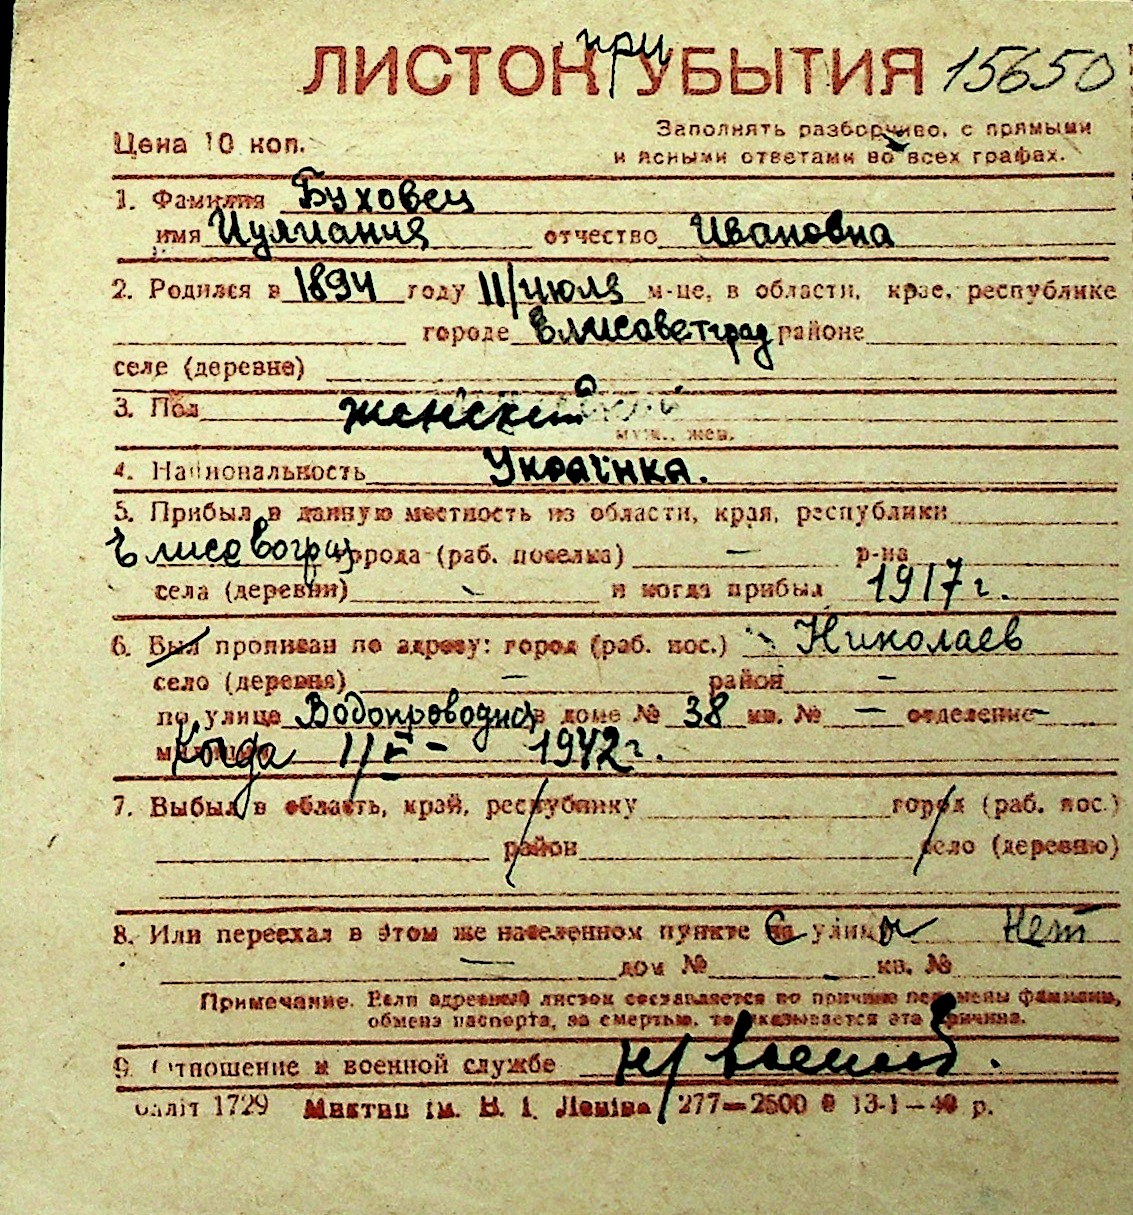 ЛИСТОК при УБЫТИЯ 15650
Цена 10 коп.
Заполнять разборчиво, с прямыми
и ясными ответами во всех графах.
1. Фамилия Буховец
имя Иулиания отчество Ивановна
2. Родился в 1894 году 11/июля м-це, в области, крае, республике
городе Елисаветград районе
селе (деревне)
3. Пол женский
муж., жен.
4. Национальность Украинка.
5. Прибыл в данную местность из области, края, республики
Елисовогрд города (раб. поселка) — р-на
села (деревни) и когда прибыл 1917 г.
6. Был прописан по адресу: город (раб. пос.) Николаев
село (деревня) — район —
по улице Водопроводна в доме № 38 кв. № — отделение
милиции Когда 1942 г.
7. Выбыл в область, край, республику город (раб. пос.)
район село (деревню)
8. Или переехал в этом же населенном пункте с улицы Нет
— дом № кв. №
Примечание. Если адресный листок составляется по причине перемены фамилии,
обмена паспорта, за смертью, то указывается эта причина.
9. Отношение к военной службе н/военноб.
1729 Миктип ім. В. І. Леніна 277—2500 13-1—40 р.